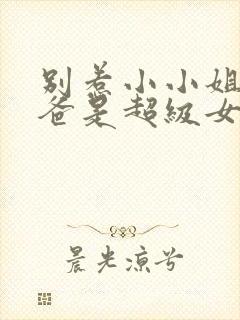 别惹小小姐
爸是超级女
晨光凉兮